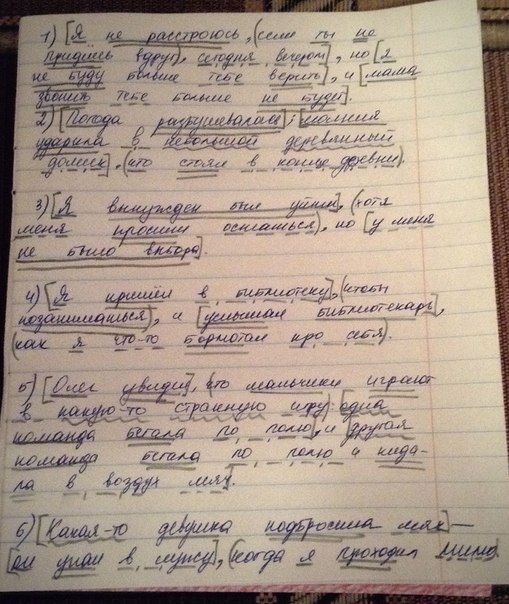 1) [Я не расстроюсь, (если ты не
придёшь вдруг), сегодня вечером], но [я
не буду больше тебе верить], и [мама
звонить тебе больше не будет].
2) [Погода разбушевалась]: [молния
ударила в небольшой деревянный
домик], (что стоял в конце деревни).
3) [Я вынужден был уйти], (хотя
меня просили остаться), но [у меня
не было выбора].
4) [Я пришёл в библиотеку], (чтобы
позаниматься), и [услышал библиотекарь],
(как я что-то бормотал про себя).
5) [Олег увидел], (что мальчики играют
в какую-то странную игру: [одна
команда бегала по полю], и [другая
команда бегала по полю и кида-
ла в воздух мяч].
6) [Какая-то девушка подбросила мяч] —
[он упал в лужу], (когда я проходил мимо